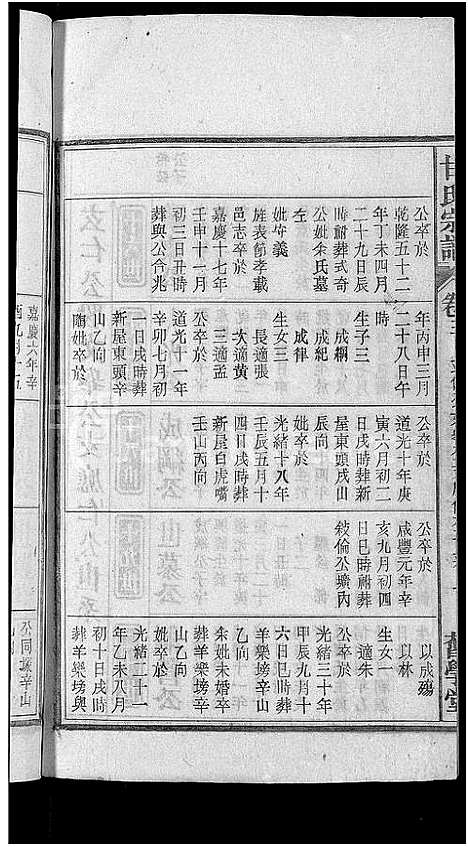 甘氏宗譜
卷三
公卒於
乾隆五十二
年丁未四月
二十九日辰
時祔葬式奇
公妣余氏墓
左
妣守義
旌表節孝載
邑志卒於
嘉慶十七年
壬申十一月
初三日丑時
葬與公合兆
年丙申三月
二十八日午
時
生子三
成綱
成紀
成律
生女三
長適張
次適黃
三適孟
公卒於
道光十一年
辛卯七月初
一日戌時葬
新屋東頭辛
山乙向
妣卒於
公卒於
道光十年庚
寅六月初二
日戌時葬新
屋東頭戌山
辰向
妣卒於
光緒十八年
壬辰五月十
四日戌時葬
新屋白虎嘴
壬山丙向
公卒於
咸豐元年辛
亥九月初四
日巳時祔葬
敍倫公壙內
以成殤
以林
生女一
適朱
公卒於
光緒三十年
甲辰九月十
六日巳時葬
羊樂塝辛
山乙向
余妣未婚卒
葬羊樂塝辛
山乙向
妣卒於
光緒二十一
年乙未八月
初十日戌時
葬羊樂塝與
嘉慶六年辛
公同兆辛山